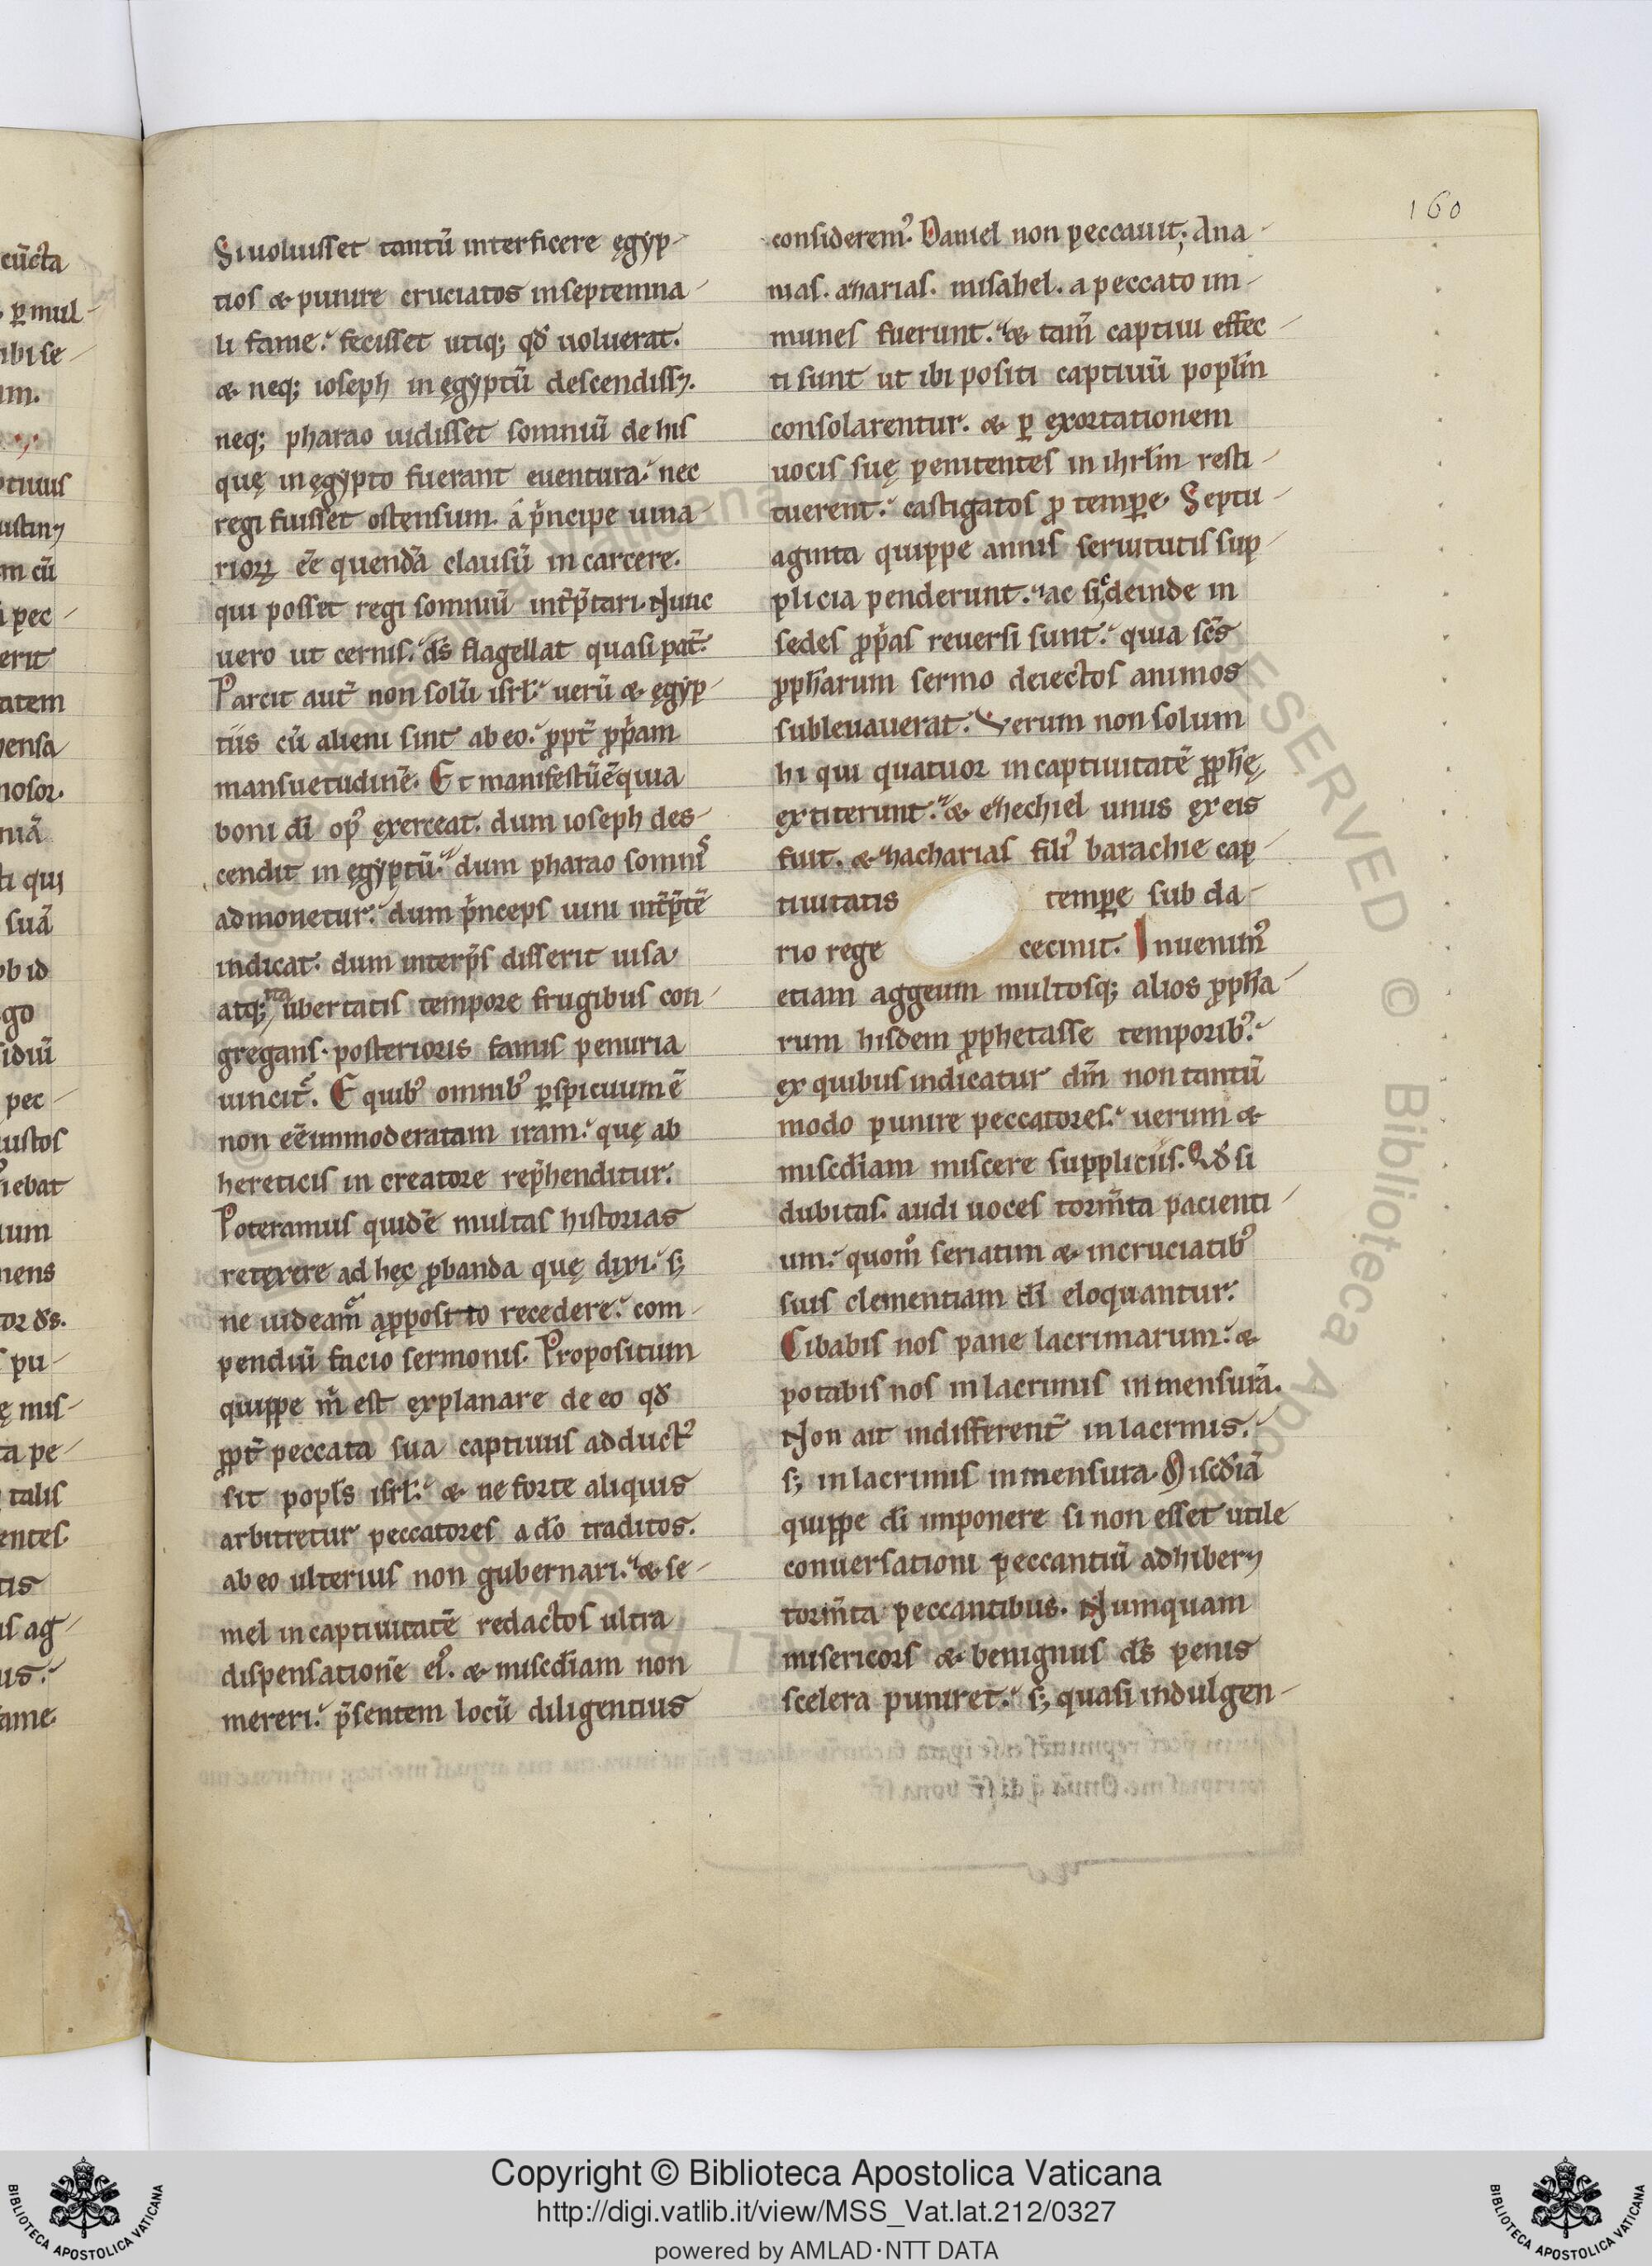 160
Si uoluisset tantũ interficere ęgyp-
tios & punire cruciatos in septenna-
li fame. fecisset utiq; qđ uoluerat.
& neq; ioseph in ęgyptũ descendiss&.
neq; pharao uidisset somniũ de his
quę in ęgypto fuerant euentura. nec
regi fuisset ostensum. á p̃ncipe uina-
rioꝝ eẽ quendã clausũ in carcere.
qui posset regi somniũ int̃p̃tari. Nunc
uero ut cernis. d̃s flagellat quasi pat̃.
Parcit aut̃ non solũ isrł. uerũ & ęgyp-
tiis cũ alieni sint ab eo. ꝓpt̃ ꝓp̃am
mansuetudinẽ. Et manifestũ ẽ quia
boni dĩ opꝰ ęxerceat. dum ioseph des-
cendit in ęgyptũ. dum pharao somniˢ
admonetur. dum p̃nceps uini int̃p̃tẽ
indicat. dum interp̃s disserit uisa
atq; ubertatis tempore frugibus con-
gregans. posterioris famis penuria
uincit̃. E quibꝰ omnibꝰ ꝑspicuum ẽ
non eẽ inmoderatam iram. quę ab
hereticis in creatore rep̃henditur.
Poteramus quidẽ multas historias
retęxere ad hęc ꝓbanda quę dixi. s;
ne uideam̃ apposito recedere. com-
pendiũ facio sermonis. Propositum
quippe m̃ est ęxplanare de eo qđ
ꝓpt̃ peccata sua captiuus adductꝰ
sit popl̃s isrł. & ne forte aliquis
arbitretur peccatores a dõ traditos.
ab eo ulterius non gubernari. & se-
mel in captiuitatẽ redactos ultra
dispensationẽ eiꝰ. & misc̃diam non
mereri. p̃sentem locũ diligentius
consideremꝰ. Daniel non peccauit; Ana-
nias. aZarias. misahel. a peccato im-
munes fuerunt. & tam̃ captiui effec-
ti sunt ut ibi positi captiuũ popl̃m
consolarentur. & ꝑ exortationem
uocis suę penitentes in ihrl̃m resti-
tuerent. castigatos ꝓ temꝑe. Septu-
aginta quippe annis seruitutis sup-
plicia penderunt. ac sic deinde in
sedes ꝓp̃as reuersi sunt. quia sc̃s
ꝓpħarum sermo deiectos animos
subleuauerat. Verum non solum
hi qui quatuor in captiuitatẽ ꝓpħę
extiterunt. & eZechiel unus ęx eis
fuit. & Zacharias filiꝰ barachie cap-
tiuitatis temꝑe sub da-
rio rege cecinit. Inuenimꝰ
etiam aggeum multosq; alios ꝓpħa-
rum hisdem ꝓphetasse temporibꝰ.
ex quibus indicatur dm̃ non tantũ
modo punire peccatores. uerum &
misc̃diam miscere suppliciis. Qđ si
dubitas. audi uoces torm̃ta pacienti-
um. quom̊ seriatim & in cruciatibꝰ
suis clementiam dĩ eloquantur.
Cibabis nos pane lacrimarum. &
potabis nos in lacrimis in mensurã.
Non ait indifferent̃ in lacrmis.
s; in lacrimis in mensura. Misc̃diã
quippe dĩ imponere si non esset utile
conuersationi peccantiũ adhiber&
torm̃ta peccantibus. Numquam
misericors & benignus d̃s penis
scelera puniret. s; quasi indulgen-
Copyright © Biblioteca Apostolica Vaticana
http://digi.vatlib.it/view/MSS_Vat.lat.212/0327
powered by AMLAD·NTT DATA
BIBLIOTECA APOSTOLICA VATICANA
BIBLIOTECA APOSTOLICA VATICANA